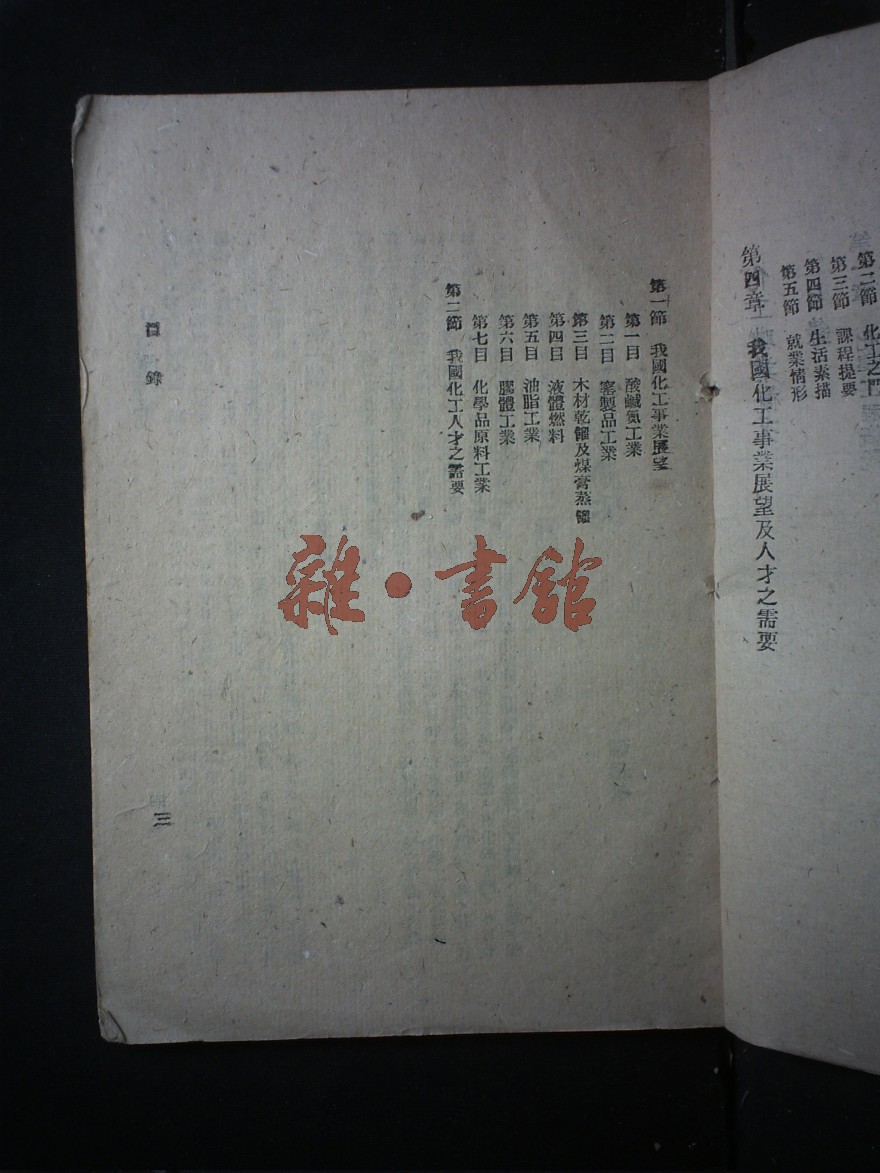 第二節 化工之門
第三節 課程提要
第四節 生活素描
第五節 就業情形
第四章 我國化工事業展望及人才之需要
第一節 我國化工事業展望
第一目 酸鹹氮工業
第二目 窰製品工業
第三目 木材乾餾及煤膏蒸餾
第四目 液體燃料
第五目 油脂工業
第六目 膠體工業
第七目 化學品原料工業
第二節 我國化工人才之需要
目錄
三
雜·書館